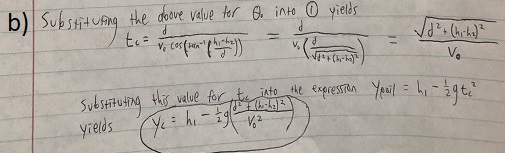 b) Substituting the above value for θ₀ into ① yields
t_c = d / (v₀ cos(tan⁻¹((h₁-h₂)/d))) = d / (v₀ (d / √(d² + (h₁-h₂)²))) = √(d² + (h₁-h₂)²) / V₀
Substituting this value for t_c into the expression y_pail = h₁ - ½gt_c²
yields y_c = h₁ - ½g((d² + (h₁-h₂)²) / V₀²)